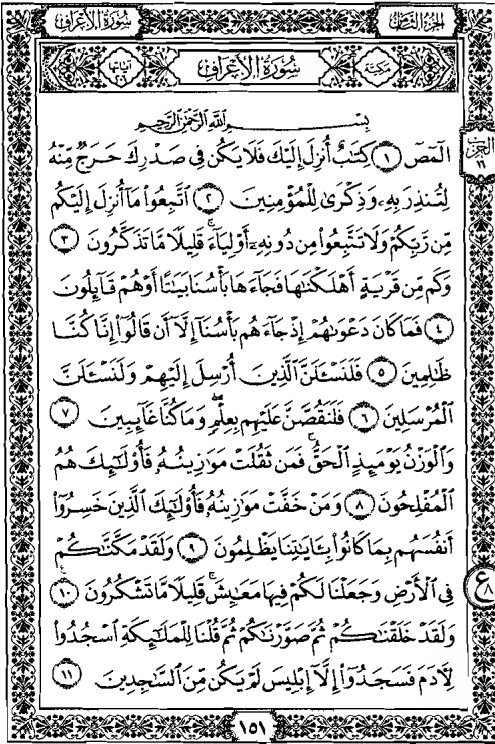 سُورَةُ الأَعْرَافِ الجُزْءُ الثَّامِنُ
مَكِّيَّة سُورَةُ الأَعْرَافِ آيَاتُهَا ٢٠٦
بِسْمِ ٱللَّهِ ٱلرَّحْمَٰنِ ٱلرَّحِيمِ
الٓمٓصٓ ١ كِتَٰبٌ أُنزِلَ إِلَيْكَ فَلَا يَكُن فِى صَدْرِكَ حَرَجٌ مِّنْهُ
الحزب ١٦
لِتُنذِرَ بِهِۦ وَذِكْرَىٰ لِلْمُؤْمِنِينَ ٢ ٱتَّبِعُوا۟ مَآ أُنزِلَ إِلَيْكُم
مِّن رَّبِّكُمْ وَلَا تَتَّبِعُوا۟ مِن دُونِهِۦٓ أَوْلِيَآءَ ۗ قَلِيلًا مَّا تَذَكَّرُونَ ٣
وَكَم مِّن قَرْيَةٍ أَهْلَكْنَٰهَا فَجَآءَهَا بَأْسُنَا بَيَٰتًا أَوْ هُمْ قَآئِلُونَ
٤ فَمَا كَانَ دَعْوَىٰهُمْ إِذْ جَآءَهُم بَأْسُنَآ إِلَّآ أَن قَالُوٓا۟ إِنَّا كُنَّا
ظَٰلِمِينَ ٥ فَلَنَسْـَٔلَنَّ ٱلَّذِينَ أُرْسِلَ إِلَيْهِمْ وَلَنَسْـَٔلَنَّ
ٱلْمُرْسَلِينَ ٦ فَلَنَقُصَّنَّ عَلَيْهِم بِعِلْمٍ ۖ وَمَا كُنَّا غَآئِبِينَ ٧
وَٱلْوَزْنُ يَوْمَئِذٍ ٱلْحَقُّ ۚ فَمَن ثَقُلَتْ مَوَٰزِينُهُۥ فَأُو۟لَٰٓئِكَ هُمُ
ٱلْمُفْلِحُونَ ٨ وَمَنْ خَفَّتْ مَوَٰزِينُهُۥ فَأُو۟لَٰٓئِكَ ٱلَّذِينَ خَسِرُوٓا۟
أَنفُسَهُم بِمَا كَانُوا۟ بِـَٔايَٰتِنَا يَظْلِمُونَ ٩ وَلَقَدْ مَكَّنَّٰكُمْ
فِى ٱلْأَرْضِ وَجَعَلْنَا لَكُمْ فِيهَا مَعَٰيِشَ ۗ قَلِيلًا مَّا تَشْكُرُونَ ١٠
ع ٨
وَلَقَدْ خَلَقْنَٰكُمْ ثُمَّ صَوَّرْنَٰكُمْ ثُمَّ قُلْنَا لِلْمَلَٰٓئِكَةِ ٱسْجُدُوا۟
لِـَٔادَمَ فَسَجَدُوٓا۟ إِلَّآ إِبْلِيسَ لَمْ يَكُن مِّنَ ٱلسَّٰجِدِينَ ١١
١٥١